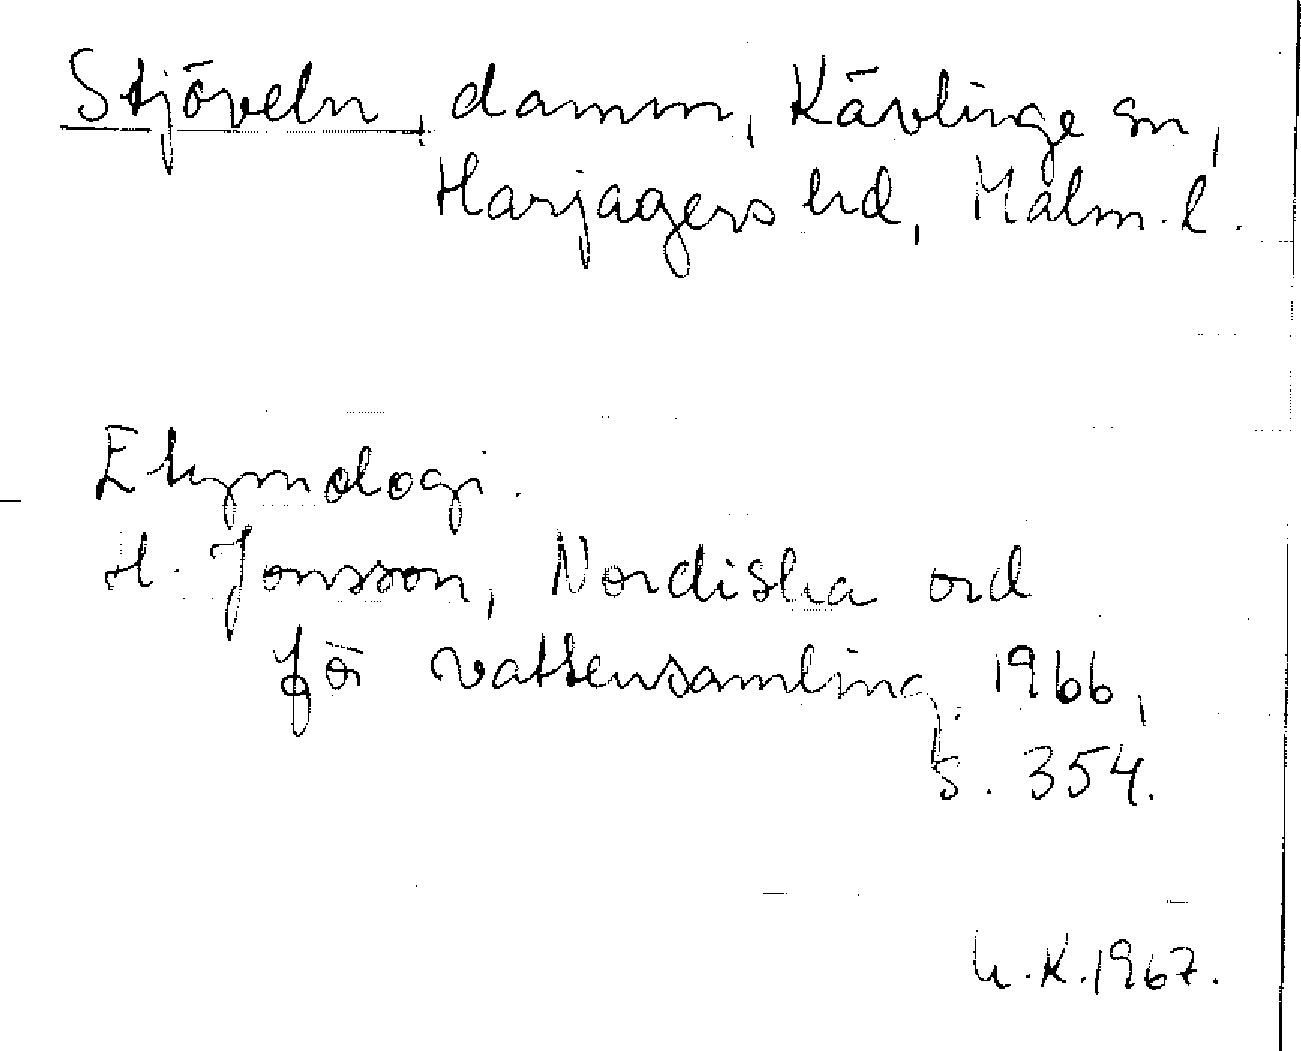 Stjöveln, damm, Kävlinge sn,
Harjagers hd, Malm. l.
Etymologi.
H. Jonsson, Nordiska ord
för vattensamling. 1966,
s. 354.
h.K.1967.